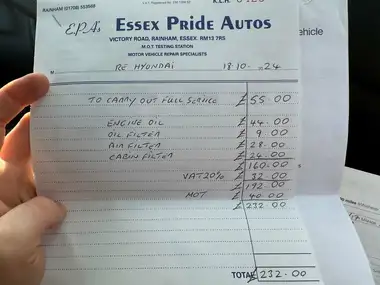 RAINHAM (01708) 553549
E.P.A's
ESSEX PRIDE AUTOS
VICTORY ROAD, RAINHAM, ESSEX. RM13 7RS
M.O.T TESTING STATION
MOTOR VEHICLE REPAIR SPECIALISTS
M RE HYUNDAI 18·10·24
TO CARRY OUT FULL SERVICE £ 55·00
ENGINE OIL £ 44·00
OIL FILTER £ 9·00
AIR FILTER £ 28·00
CABIN FILTER £ 24·00
£ 160·00
VAT 20% £ 32·00
£ 192·00
MOT £ 40·00
£ 232·00
TOTAL £ 232·00
ehicle